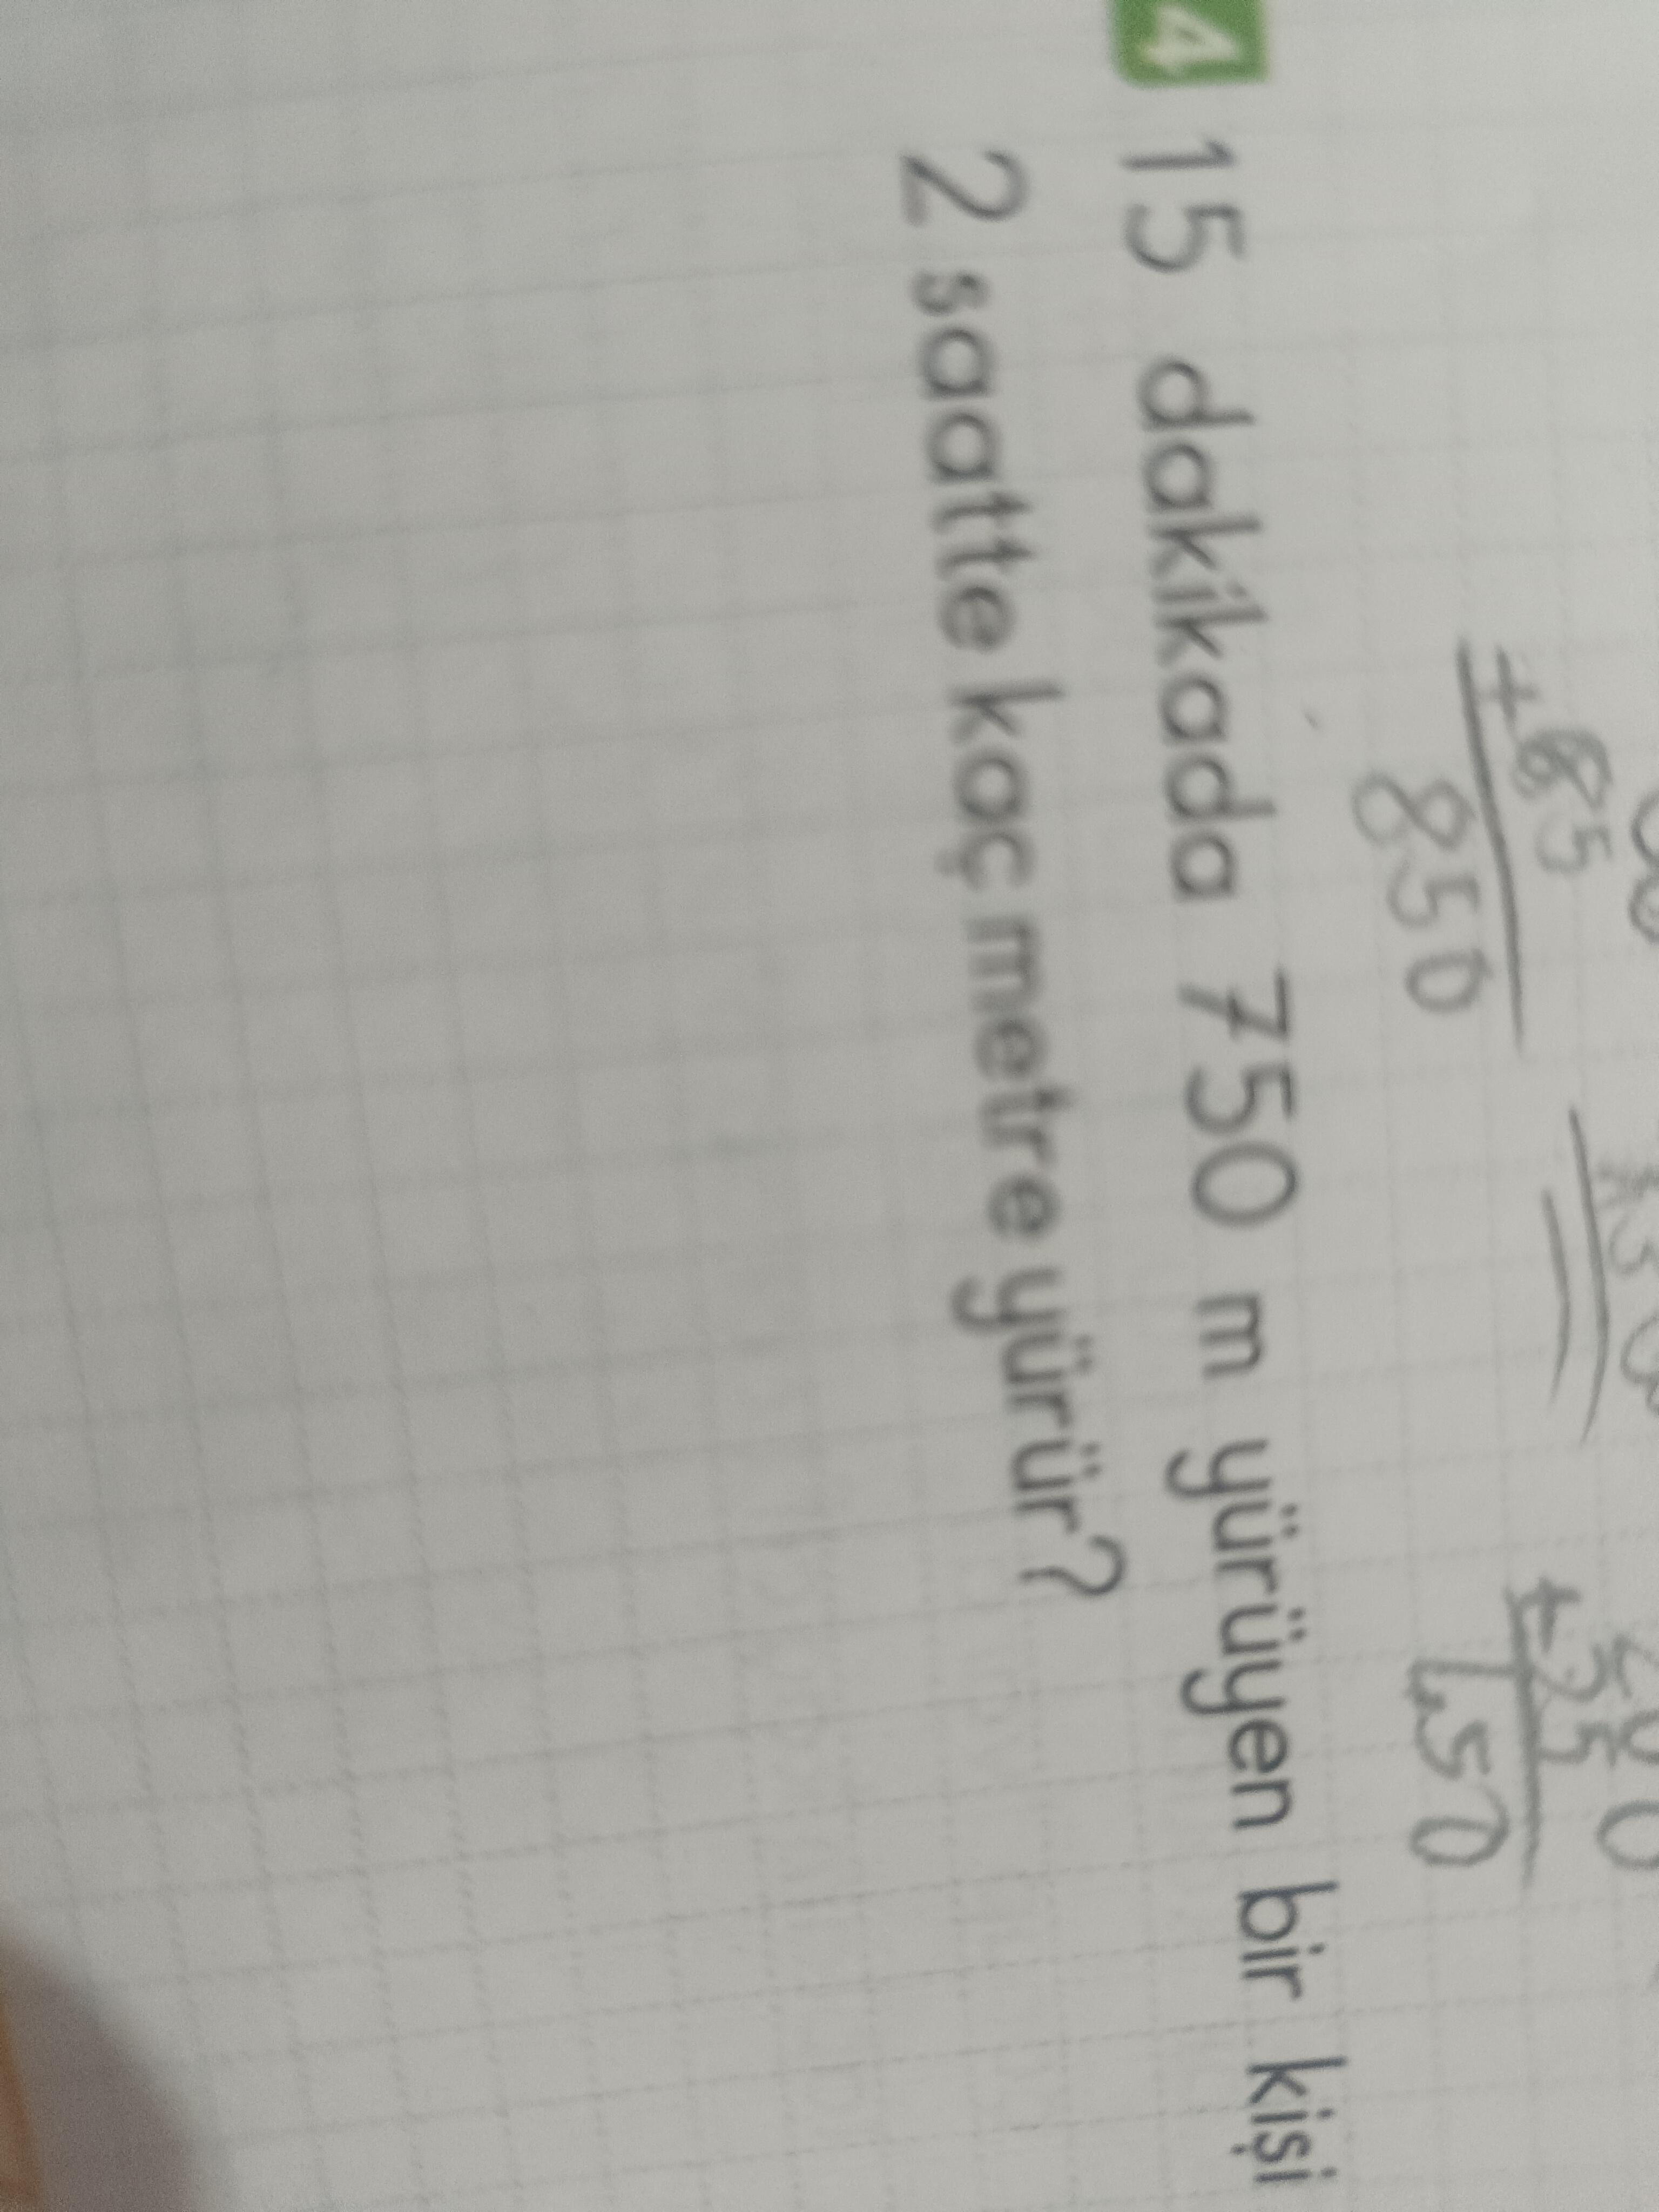 +65
850
+25
450
4
15 dakikada 750 m yürüyen bir kişi
2 saatte kaç metre yürür?